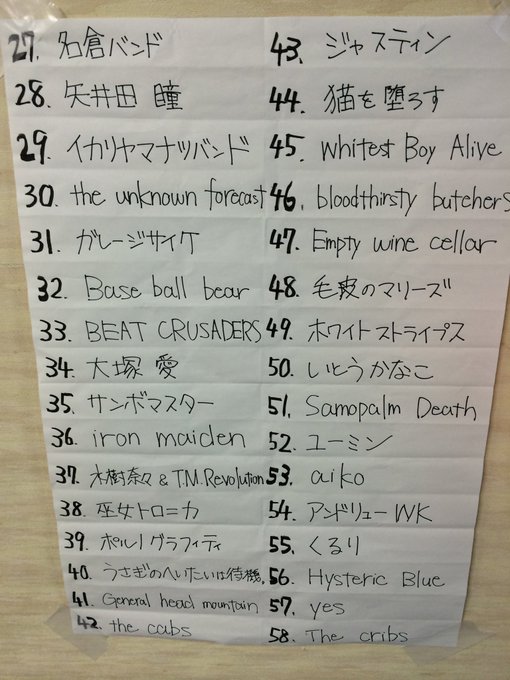 27. 名倉バンド
28. 矢井田 瞳
29. イカリヤマナツバンド
30. the unknown forecast
31. ガレージサイケ
32. Base ball bear
33. BEAT CRUSADERS
34.大塚 愛
35. サンボマスター
36. iron maiden
37. 水樹奈々 & T.M.Revolution
38. 巫女トロニカ
39. ポルノグラフィティ
40. うさぎのへいたいは待機。
41. General head mountain
42. the cabs
43. ジャスティン
44. 猫を堕ろす
45. Whitest Boy Alive
46. bloodthirsty butchers
47. Empty wine cellar
48. 毛皮のマリーズ
49. ホワイトストライプス
50. いとうかなこ
51. Samopalm Death
52. ユーミン
53. aiko
54. アンドリューWK
55. くるり
56. Hysteric Blue
57. yes
58. The cribs